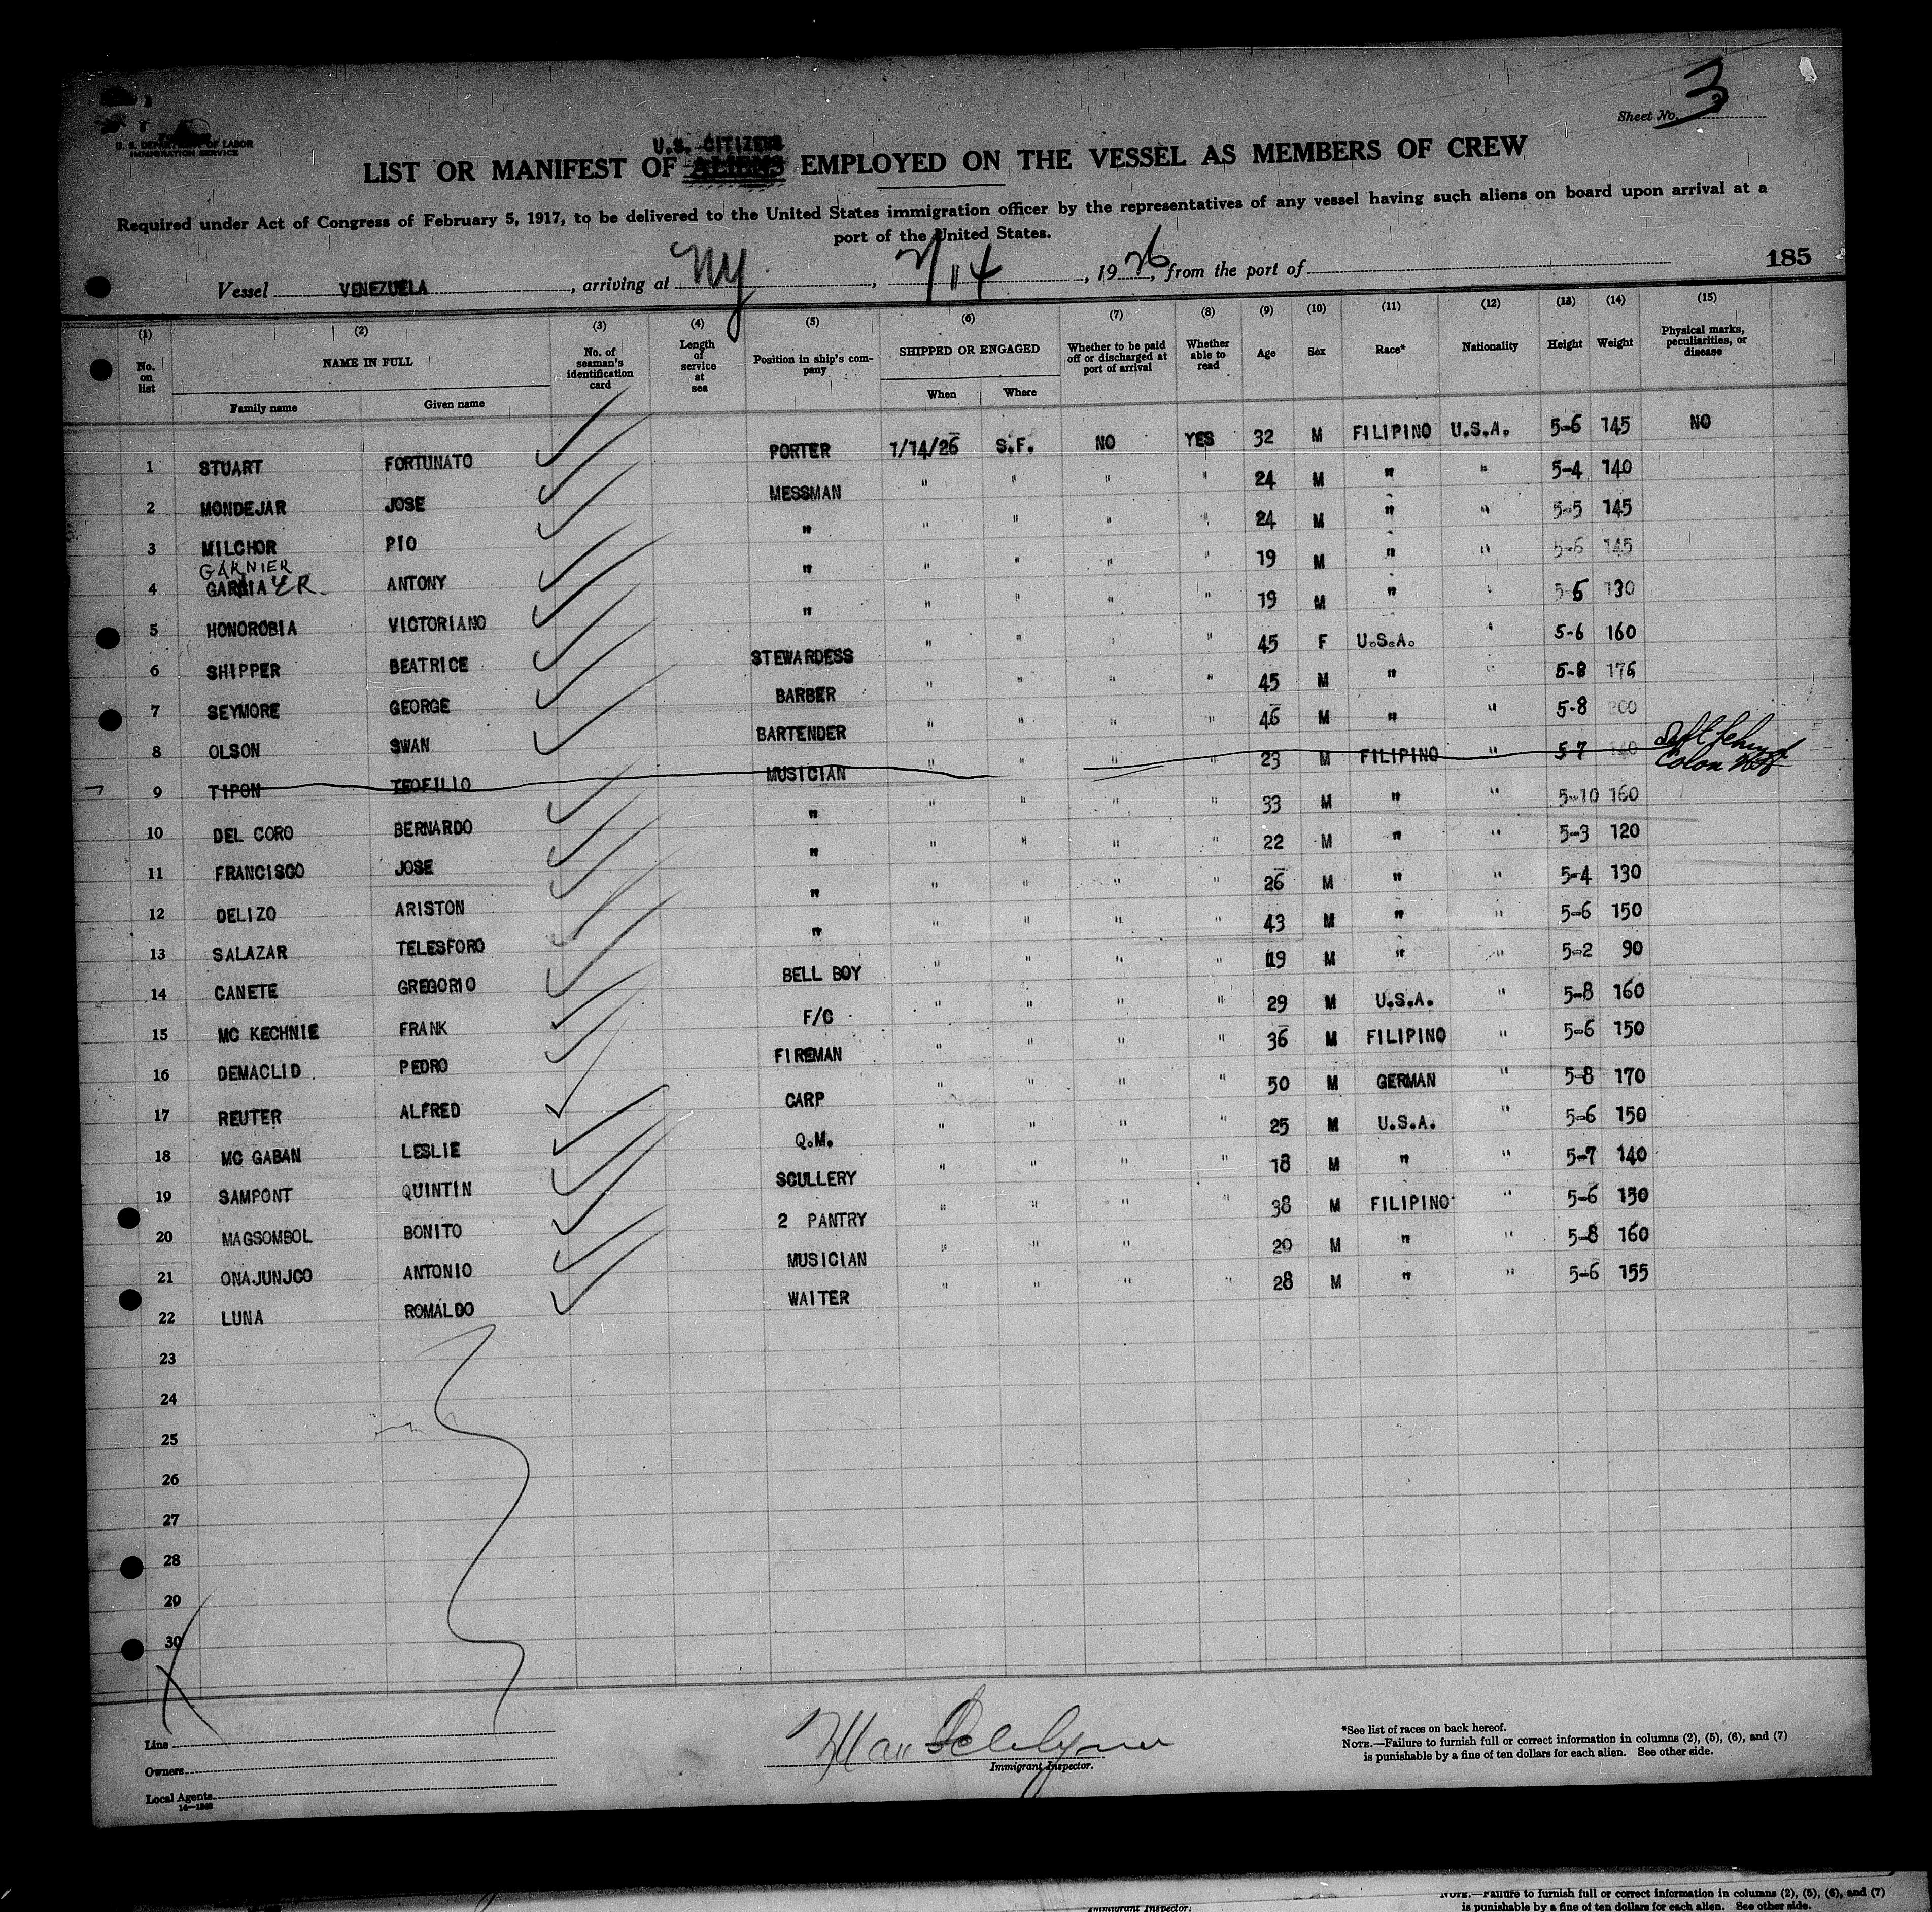 Sheet No. 3
U. S. DEPARTMENT OF LABOR
IMMIGRATION SERVICE
U.S. CITIZENS
LIST OR MANIFEST OF ALIENS EMPLOYED ON THE VESSEL AS MEMBERS OF CREW
Required under Act of Congress of February 5, 1917, to be delivered to the United States immigration officer by the representatives of any vessel having such aliens on board upon arrival at a
port of the United States.
185
Vessel VENEZUELA, arriving at NY, 2/14, 1926, from the port of
(1) (2) (3) (4) (5) (6) (7) (8) (9) (10) (11) (12) (13) (14) (15)
No. on list NAME IN FULL Family name Given name No. of seaman's identification card Length of service at sea Position in ship's company SHIPPED OR ENGAGED When Where Whether to be paid off or discharged at port of arrival Whether able to read Age Sex Race* Nationality Height Weight Physical marks, peculiarities, or disease
1 STUART FORTUNATO PORTER 1/14/26 S.F. NO YES 32 M FILIPINO U.S.A. 5-6 145 NO
2 MONDEJAR JOSE MESSMAN " " " " 24 M " " 5-4 140
3 MILCHOR PIO " " " " " 24 M " " 5-5 145
GARNIER
4 GARCIA ER ANTONY " " " " " 19 M " " 5-6 145
5 HONOROBIA VICTORIANO " " " " " 19 M " " 5-6 130
6 SHIPPER BEATRICE STEWARDESS " " " " 45 F U.S.A. " 5-6 160
7 SEYMORE GEORGE BARBER " " " " 45 M " " 5-8 176
8 OLSON SWAN BARTENDER " " " " 46 M " " 5-8 200
9 TIPON TEOFILIO MUSICIAN " " " " 23 M FILIPINO " 5-7 140 Colon
10 DEL CORO BERNARDO " " " " " 33 M " " 5-10 160
11 FRANCISCO JOSE " " " " " 22 M " " 5-3 120
12 DELIZO ARISTON " " " " " 26 M " " 5-4 130
13 SALAZAR TELESFORO " " " " " 43 M " " 5-6 150
14 CANETE GREGORIO BELL BOY " " " " 19 M " " 5-2 90
15 MC KECHNIE FRANK F/C " " " " 29 M U.S.A. " 5-8 160
16 DEMACLID PEDRO FIREMAN " " " " 36 M FILIPINO " 5-6 150
17 REUTER ALFRED CARP " " " " 50 M GERMAN " 5-8 170
18 MC GABAN LESLIE Q.M. " " " " 25 M U.S.A. " 5-6 150
19 SAMPONT QUINTIN SCULLERY " " " " 18 M " " 5-7 140
20 MAGSOMBOL BONITO 2 PANTRY " " " " 38 M FILIPINO " 5-6 150
21 ONAJUNJCO ANTONIO MUSICIAN " " " 20 M " " 5-8 160
22 LUNA ROMALDO WAITER " " " " 28 M " " 5-6 155
23
24
25
26
27
28
29
30
Line
Owners
Local Agents
14—1240
Immigrant Inspector.
*See list of races on back hereof.
NOTE.—Failure to furnish full or correct information in columns (2), (5), (6), and (7)
is punishable by a fine of ten dollars for each alien. See other side.
NOTE.—Failure to furnish full or correct information in columns (2), (5), (6), and (7)
Immigrant Inspector.
is punishable by a fine of ten dollars for each alien. See other side.